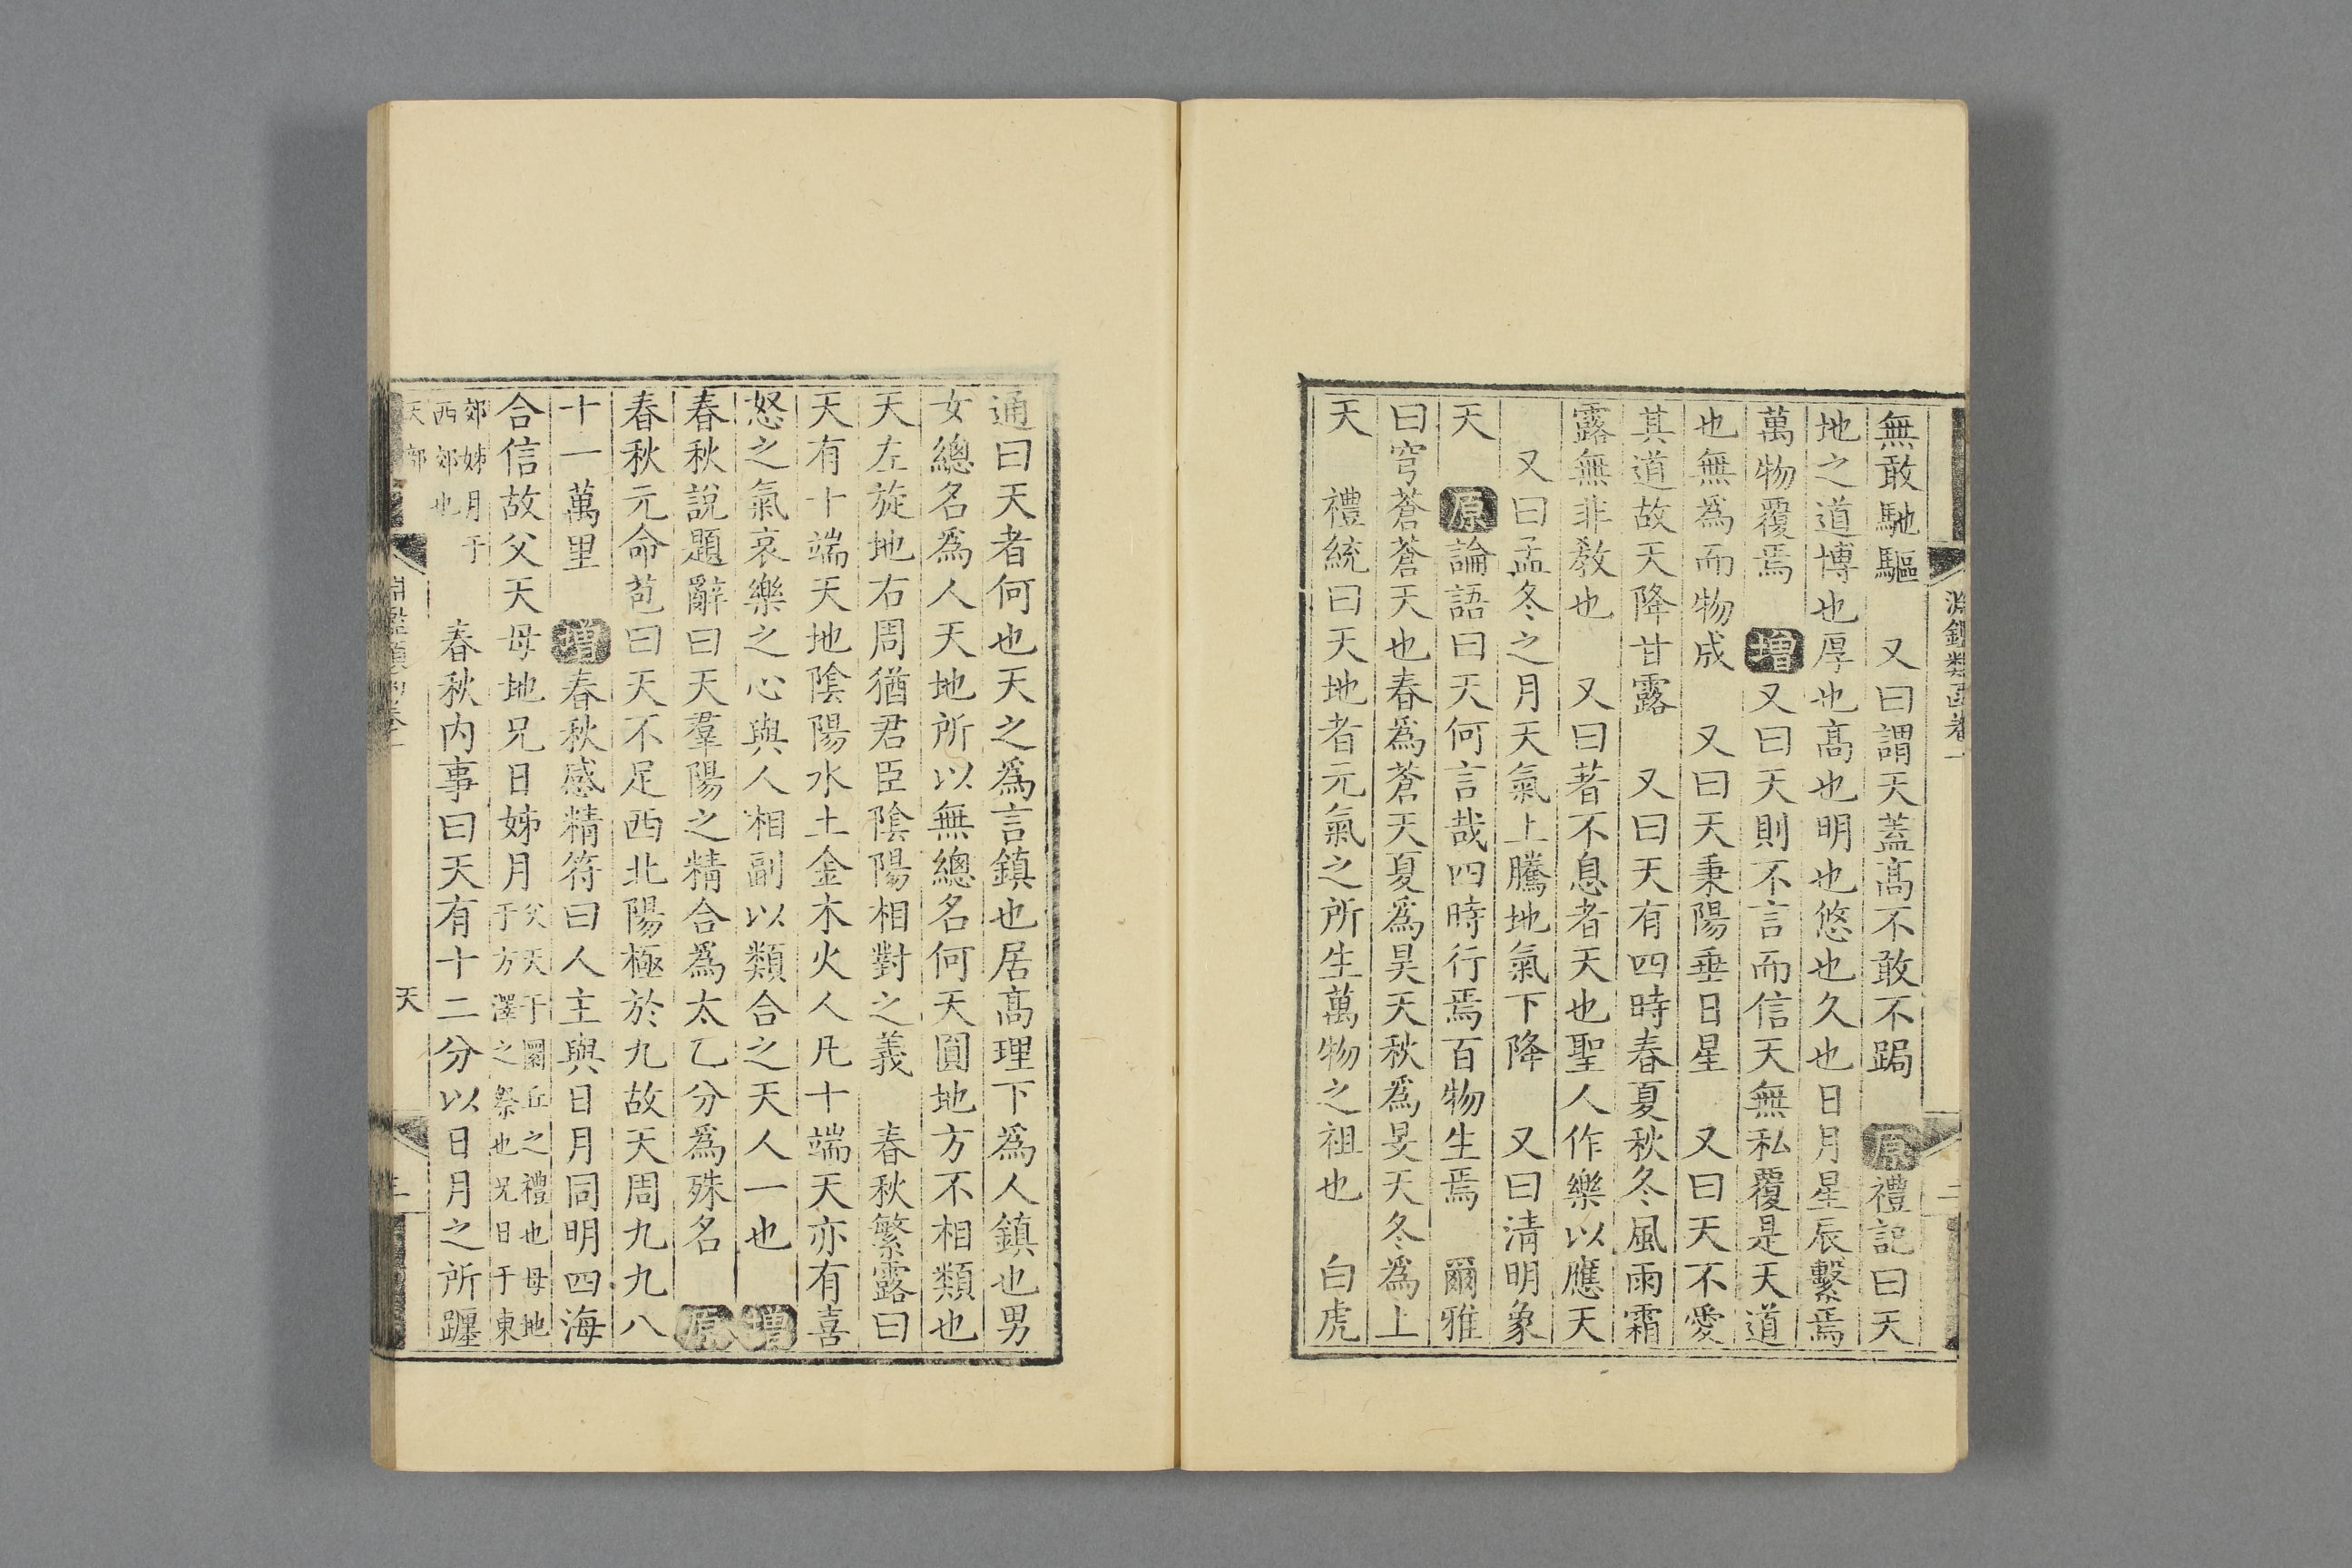 淵鑑類函卷一
二
無敢馳驅　又曰謂天蓋高不敢不跼　原禮記曰天
地之道博也厚也高也明也悠也久也日月星辰繫焉
萬物覆焉　增又曰天則不言而信天無私覆是天道
也無爲而物成　又曰天秉陽垂日星　又曰天不愛
其道故天降甘露　又曰天有四時春夏秋冬風雨霜
露無非教也　又曰著不息者天也聖人作樂以應天
又曰孟冬之月天氣上騰地氣下降　又曰清明象
天　原論語曰天何言哉四時行焉百物生焉　爾雅
曰穹蒼蒼天也春爲蒼天夏爲昊天秋爲旻天冬爲上
天　禮統曰天地者元氣之所生萬物之祖也　白虎
通曰天者何也天之爲言鎮也居高理下爲人鎮也男
女總名爲人天地所以無總名何天圓地方不相類也
天左旋地右周猶君臣陰陽相對之義　春秋繁露曰
天有十端天地陰陽水土金木火人凡十端天亦有喜
怒之氣哀樂之心與人相副以類合之天人一也　增
春秋說題辭曰天羣陽之精合爲太乙分爲殊名　原
春秋元命苞曰天不足西北陽極於九故天周九九八
十一萬里　增春秋感精符曰人主與日月同明四海
合信故父天母地兄日姊月父天于圜丘之禮也母地
于方澤之祭也兄日于東
郊姊月于
西郊也　春秋内事曰天有十二分以日月之所躔
天部
淵鑑類函卷一
天